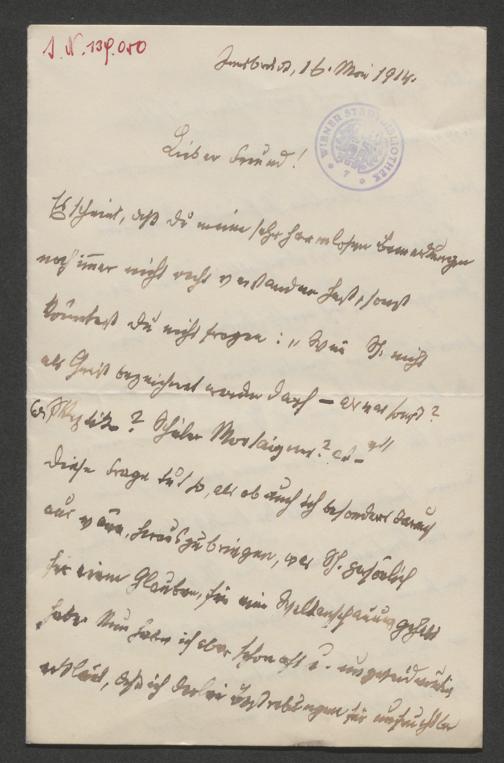 I. N. 139.050
Innsbruck, 16. Mai 1914.
WIENER STADTBIBLIOTHEK
7
Lieber Freund!
Es scheint, daß du meine sehr harmlosen Bemerkungen
noch immer nicht recht verstanden hast, sonst
könntest du nicht fragen: „Was S. nicht
als Christ bezeichnet werden darf – als was sonst?
Skeptiker? Schüler Montaignes?
Diese Frage tut so, als ob auch ich besonders darauf
aus wäre, herauszubringen, was S. persönlich
für einen Glauben, für eine Weltanschauung gehabt
habe. Nun habe ich aber schon oft u. unzweideutig
erklärt, daß ich derlei Bestrebungen für unfruchtbar